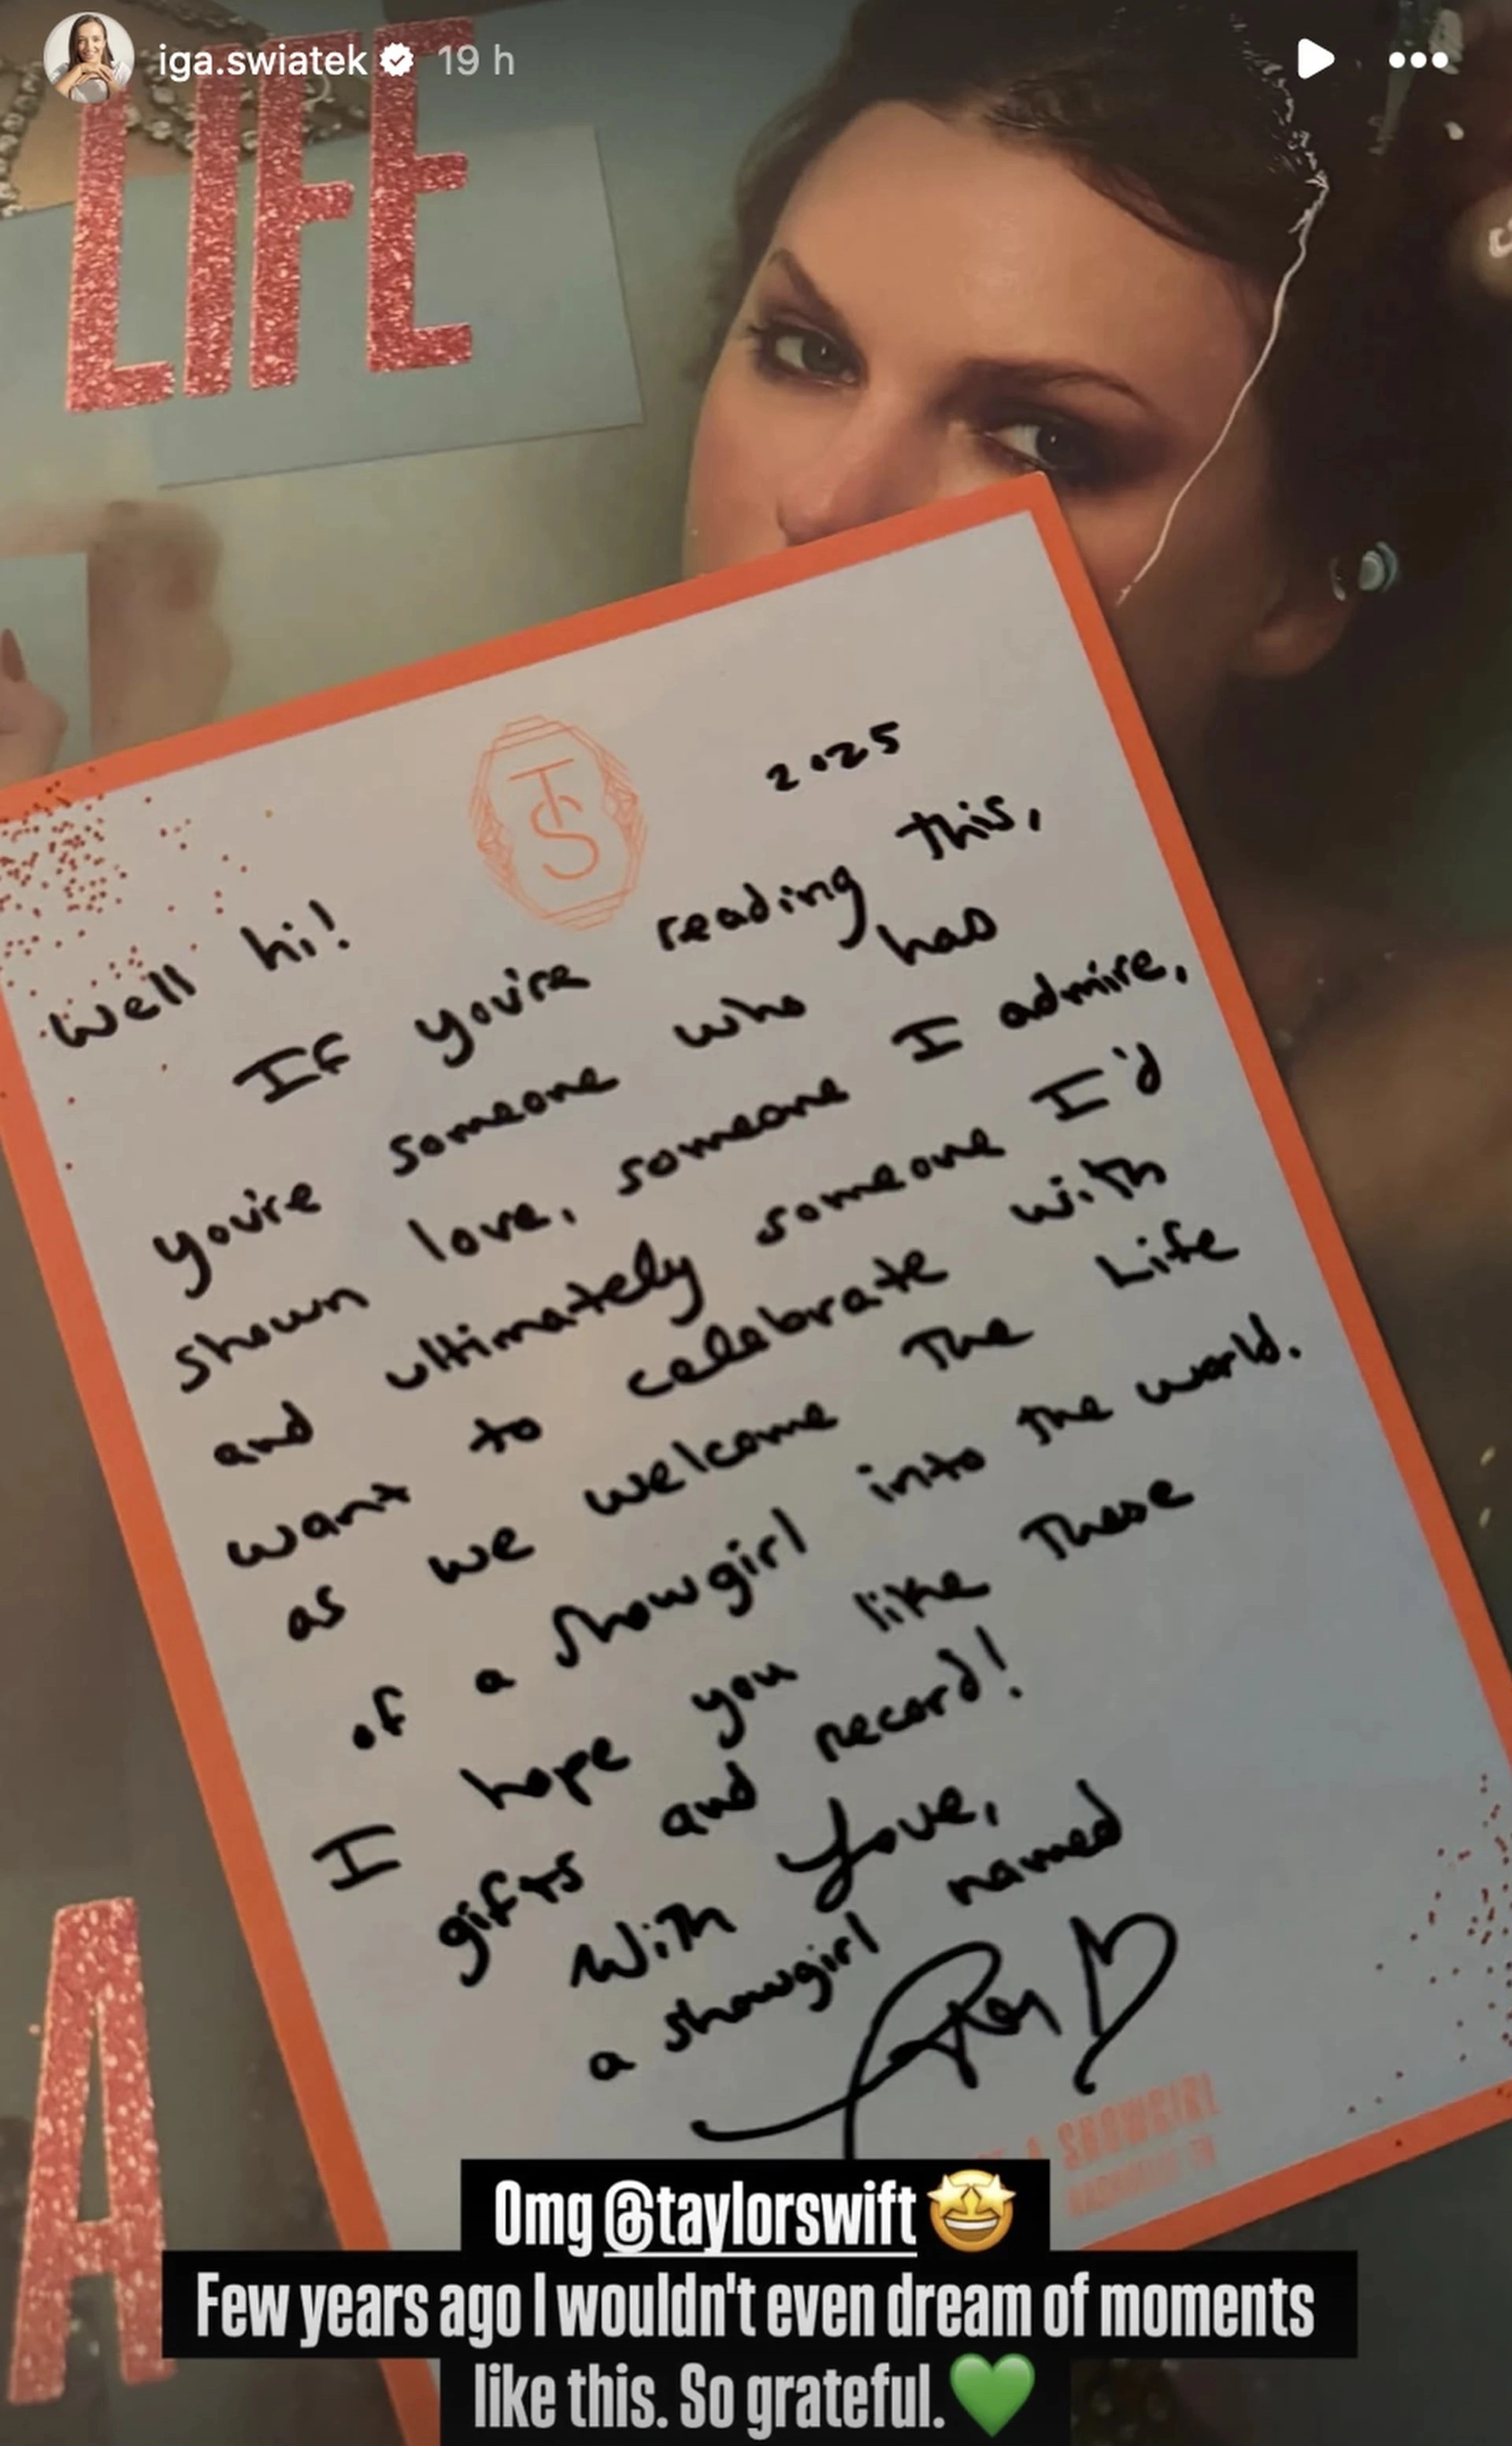 iga.swiatek 19 h
LIFE
TS
2025
Well hi!
If you're reading this,
you're someone who has
shown love, someone I admire,
and ultimately someone I'd
want to celebrate with
as we welcome The Life
of a Showgirl into the world.
I hope you like these
gifts and record!
With Love,
a showgirl named
A SHOWGIRL
A
Omg @taylorswift 🤩
Few years ago I wouldn't even dream of moments
like this. So grateful. 💚